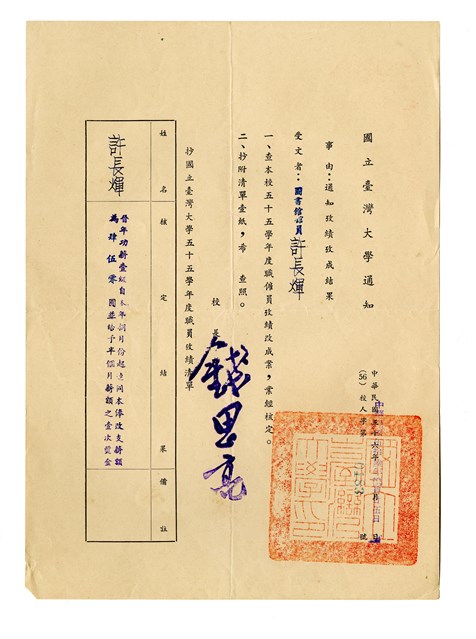 國立臺灣大學通知
中華民國五十六年 月 五日
(56)校人字第 號
事由：通知考績考成結果
受文者：圖書館 員 許長輝
一、查本校五十五學年度職僱員考績考成業，業經核定。
二、抄附清單壹紙，希 查照。
校長 錢思亮
抄國立臺灣大學五十五學年度職員考績清單
姓名 核定結果 備註
許長輝
晉年功薪壹級自本年捌月份起連同本俸改支薪額
為肆伍零圓並給予半個月薪額之壹次獎金